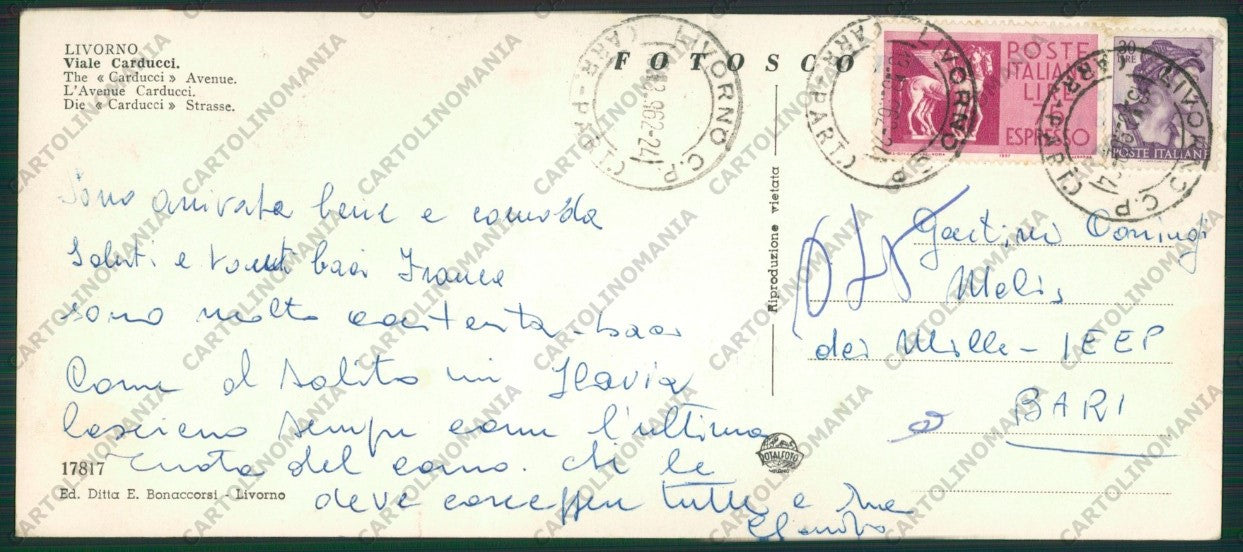 LIVORNO
Viale Carducci.
The « Carducci » Avenue.
L'Avenue Carducci.
Die « Carducci » Strasse.
FOTOSCO
LIVORNO C.P.
ARR-PART
LIVORNO C.P.
ARR-PART
POSTE
ITALIANE
LIRE
75
ESPRESSO
30
LIRE
POSTE ITALIANE
LIVORNO C.P.
ARR-PART
Sono arrivata bene e comoda
Saluti e tanti baci Franca
sono molto contenta - baci
Come al solito mi Flavia
lasciano sempre come l'ultima
ruota del carro. che le
deve concesse tutte e
Riproduzione vietata
Melis
dei Mille - IEEP
BARI
17817
Ed. Ditta E. Bonaccorsi - Livorno
ROTALFOTO
CARTOLINOMANIA